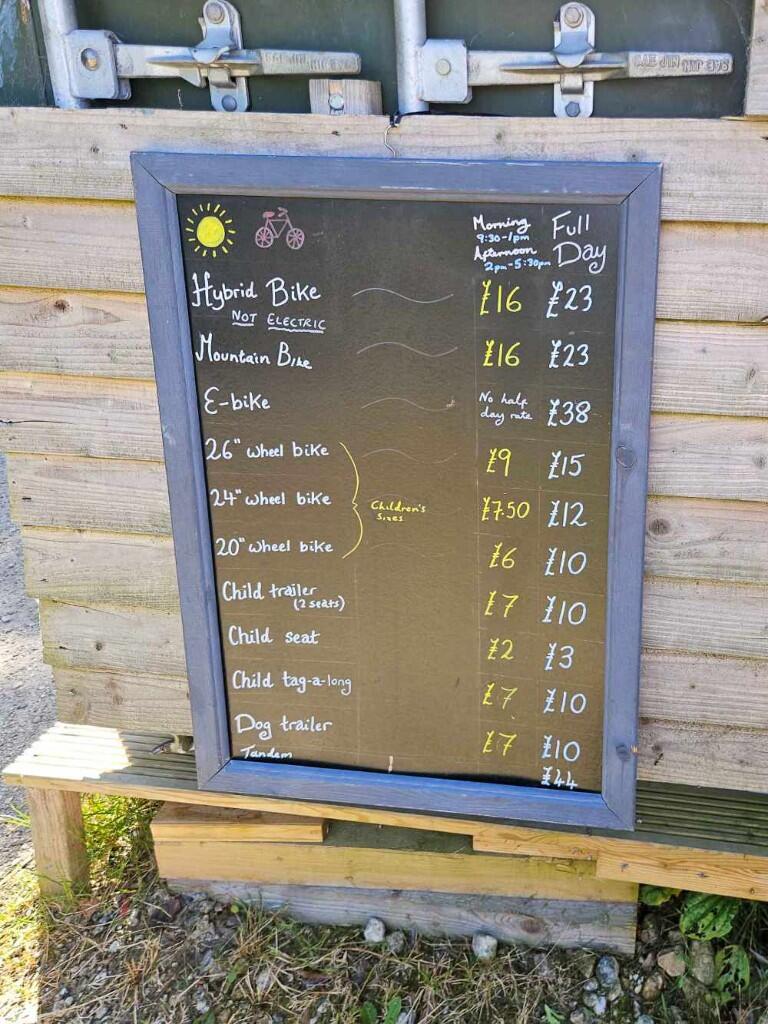 CAE JIN NTP 378
Morning
9:30-1pm
Afternoon
2pm-5:30pm
Full
Day
Hybrid Bike £16 £23
NOT ELECTRIC
Mountain Bike £16 £23
E-bike No half day rate £38
26" wheel bike £9 £15
24" wheel bike Children's Sizes £7.50 £12
20" wheel bike £6 £10
Child trailer £7 £10
(2 seats)
Child seat £2 £3
Child tag-a-long £7 £10
Dog trailer £7 £10
Tandem £44